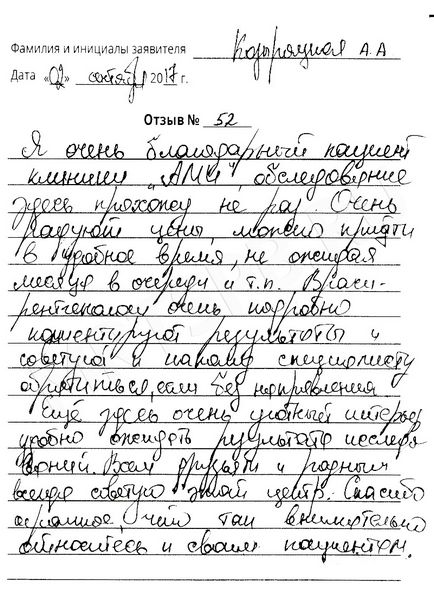 Фамилия и инициалы заявителя Кодыряцкая А.А
Дата «02» сентябр 2017 г.
Отзыв № 52
Я очень благодарный пациент
клиники „АМИ", обследование
здесь прохожу не раз. Очень
радуют цены, можно придти
в удобное время, не ожидая
месяца в очереди и т.п. Врачи-
рентгенологи очень подробно
комментируют результаты и
советуют к какому специалисту
обратиться, если без направления
Ещё здесь очень уютный интерьер
удобно ожидать результата исследо
ваний. Всем друзьям и родным
всегда советую этот центр. Спасибо
огромное, что так внимательно
относитесь к своим пациентам.